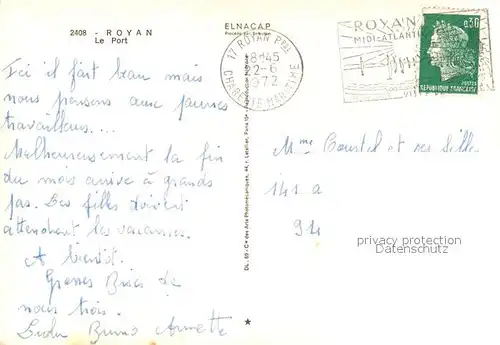 2408 - ROYAN
Le Port
ELNACAP
17 ROYAN Ppal
18H45
2-6
1972
CHARENTE-MARITIME
ROYAN
MIDI-ATLANTI
0,30
POSTES
REPUBLIQUE FRANÇAISE
Ici il fait beau mais
nous pensons aux pauvres
travailleurs....
Malheureusement la fin
du mois arrive à grands
pas. Les filles doivent
attendent les vacances.
A bientôt.
Grosses Bises de
nous trois.
Bruno Annette
Mme et ses filles
141 a
94
privacy protection
watermark